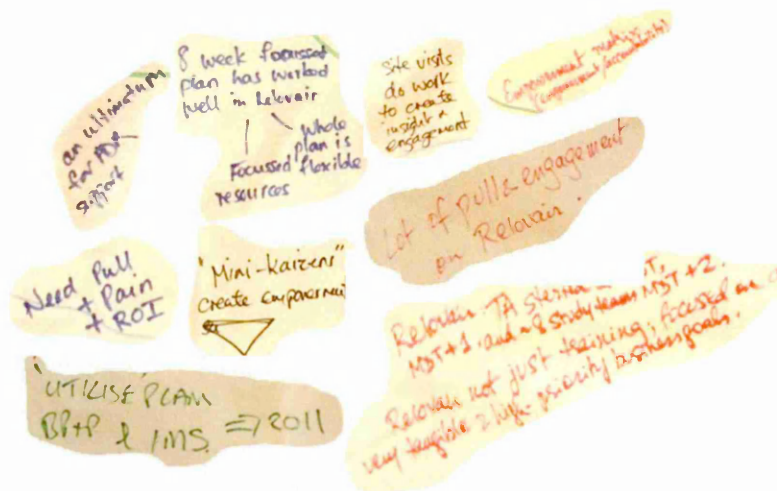 an ultimatum
for
support
8 week focussed
plan has worked
well in Relovair
Whole
plan is
flexible
Focussed
resources
Site visits
do work
to create
insight &
engagement
Empowerment matrix
Lot of pull & engagement
on Relovair.
Need Pull
+ Pain
+ ROI
"Mini-kaizens"
create empowerment
'UTILISE' PLAN
BP&P & IMS => 2011
Relovair TA
MDT+1, and study teams MDT+2.
Relovair not just training, focused on
very tangible & high priority business goals.